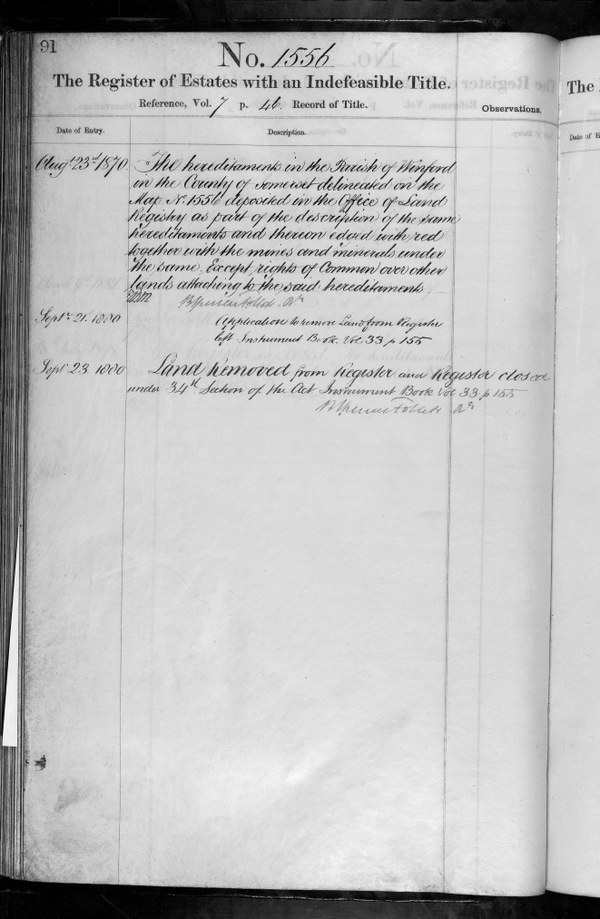 91
No. 1556
The Register of Estates with an Indefeasible Title.
Reference, Vol. 7 p. 46 Record of Title.
Observations.
Date of Entry.
Description.
Augt 23rd 1870.
The hereditaments in the Parish of Winford
in the County of Somerset delineated on the
Map No. 1556 deposited in the Office of Land
Registry as part of the description of the same
hereditaments and thereon edged with red
together with the mines and minerals under
the same. Except rights of Common over other
lands attaching to the said hereditaments.
Brent Spencer Follett
Septr 21. 1880
Application to remove Land from Register
left Instrument Book. Vol 33 p 155
Septr 23 1880
Land Removed from Register and Register closed
under 34th Section of the Act Instrument Book Vol 33 p 155
Brent Spencer Follett
The
Date of E